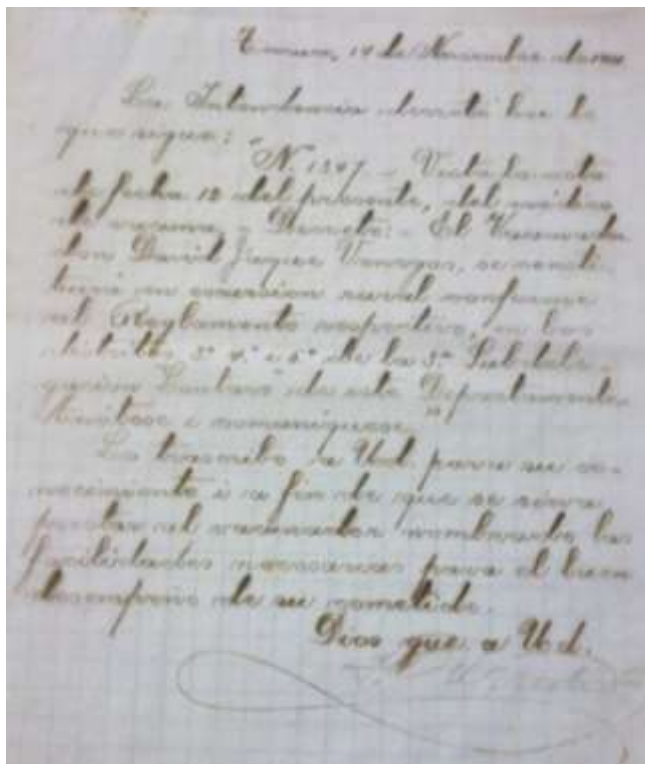 Temuco, 14 de Noviembre de
La Intendencia decretó hoi lo
que sigue:
"N. 1247 - Vista la nota
de fecha 12 del presente, del médico
de vacuna, - Decreto: - El Vacunador
don David Jaque Venegas, se consti-
tuirá en escursion rural conforme
al Reglamento respectivo, en los
distritos 3° 4° i 5° de la 3a Subdele-
gacion "Lautaro" de este Departamento
Anótese i comuníquese."
Lo trascribo a Ud. para su co-
nocimiento i a fin de que se sirva
prestar al vacunador nombrado las
facilidades necesarias para el buen
desempeño de su cometido.
Dios gue. a Ud.